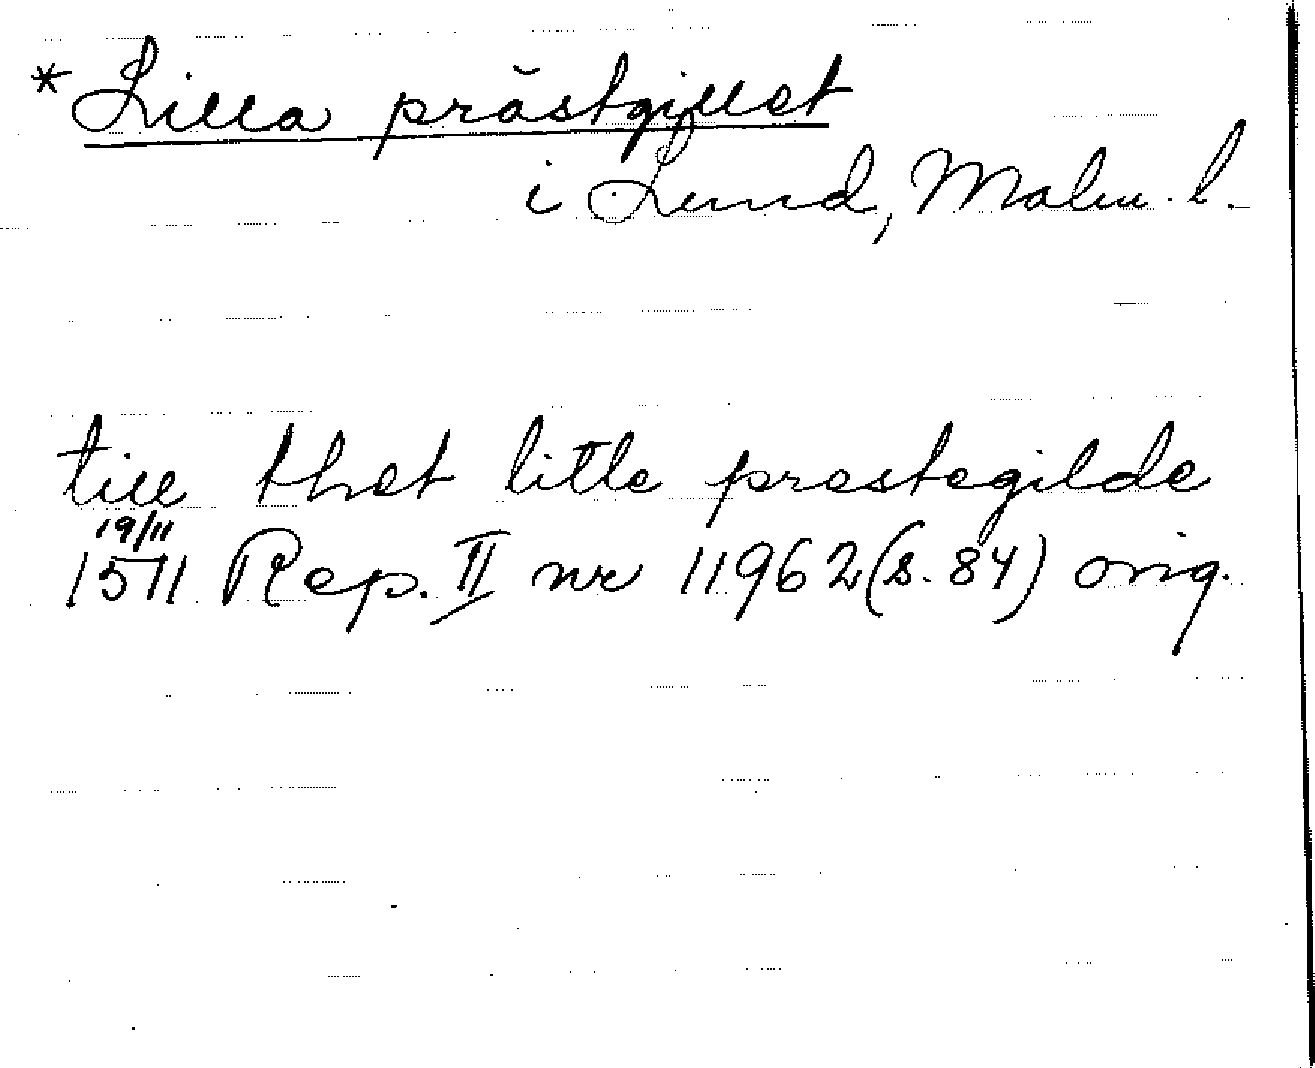 *Lilla prästgillet
i Lund, Malm. l.
till thet litle prestegilde
19/11
1511 Rep. II nr 11962 (s. 84) orig.